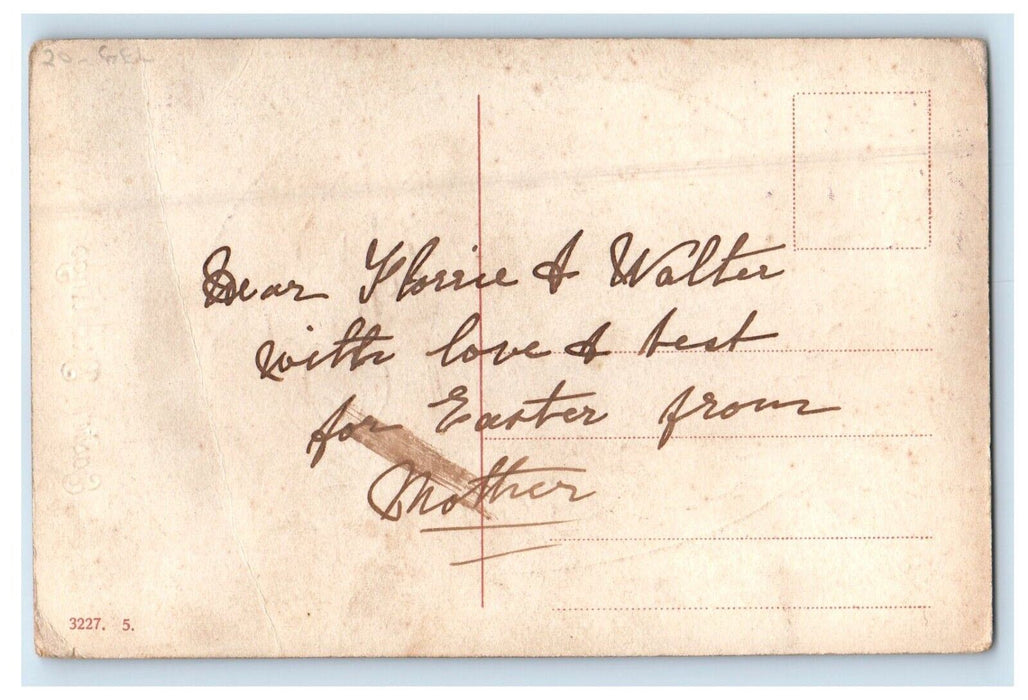 Dear Florrie & Walter
with love & best
for Easter from
Mother
3227. 5.